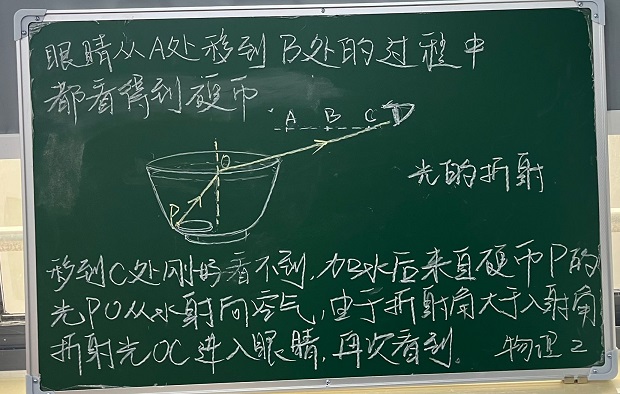 眼睛从A处移到B处的过程中
都看得到硬币
A B C
O
光的折射
P
移到C处刚好看不到,加水后来自硬币P的
光PO从水射向空气,由于折射角大于入射角
折射光OC进入眼睛,再次看到。 物理2